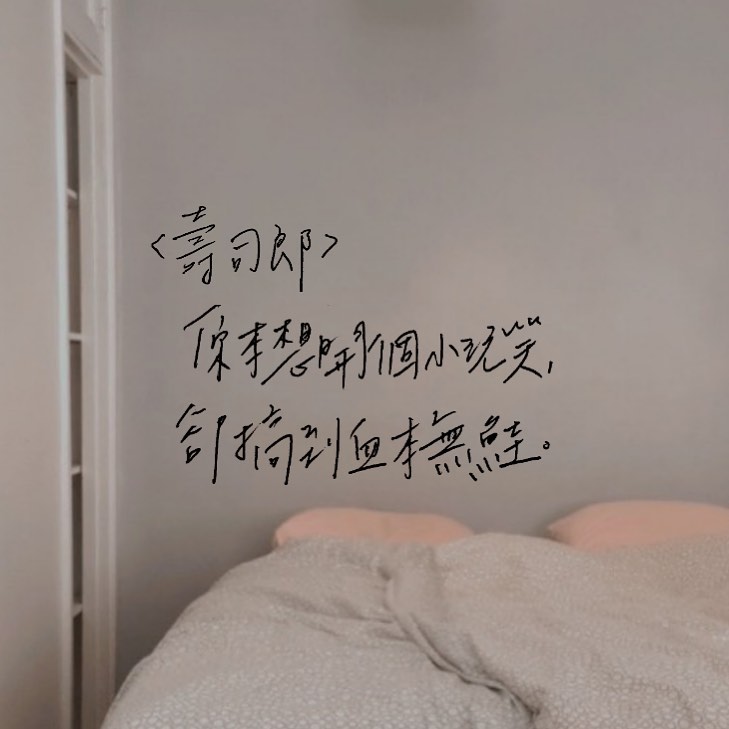 <壽司郎>
你本想開個小玩笑,
卻搞到血本無鮭。